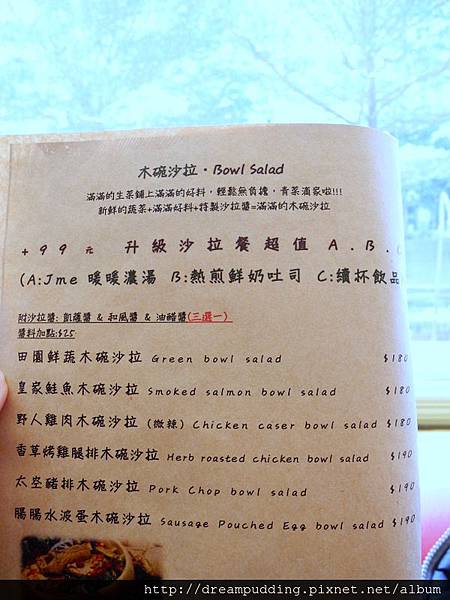 木碗沙拉・Bowl Salad
滿滿的生菜鋪上滿滿的好料，輕鬆無負擔，青菜滴家啦!!!
新鮮的蔬菜+滿滿好料+特製沙拉醬=滿滿的木碗沙拉
+99元 升級沙拉餐超值 A.B.C
(A:Jme 暖暖濃湯 B:熱煎鮮奶吐司 C:續杯飲品
附沙拉醬: 凱薩醬 & 和風醬 & 油醋醬(三選一)
醬料加點:$25
田園鮮蔬木碗沙拉 Green bowl salad $180
皇家鮭魚木碗沙拉 Smoked salmon bowl salad $180
野人雞肉木碗沙拉 (微辣) Chicken caser bowl salad $180
香草烤雞腿排木碗沙拉 Herb roasted chicken bowl salad $190
太空豬排木碗沙拉 Pork Chop bowl salad $190
腸腸水波蛋木碗沙拉 Sausage Pouched Egg bowl salad $190
http://dreampudding.pixnet.net/album